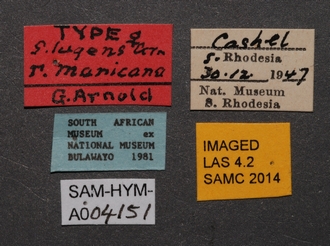 TYPE ♀
S. lugens Grn
r. manicana
G. Arnold
Cashel
S. Rhodesia
30.12 1947
Nat. Museum
S. Rhodesia
SOUTH AFRICAN
MUSEUM ex
NATIONAL MUSEUM
BULAWAYO 1981
IMAGED
LAS 4.2
SAMC 2014
SAM-HYM-
A004151